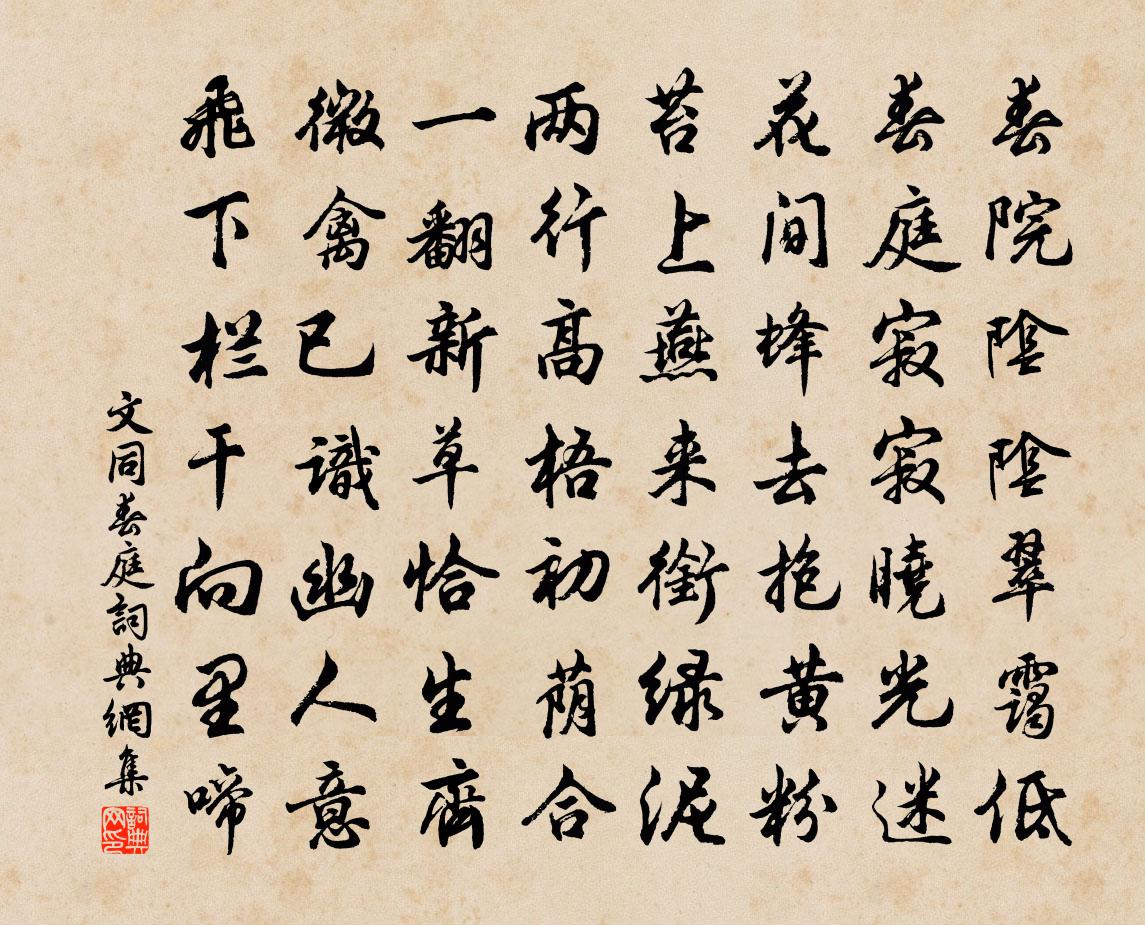 春院陰陰翠靄低
春庭寂寂曉光迷
花间蜂去抱黄粉
苔上燕来銜绿泥
两行高梧初荫合
一翻新草恰生齊
微禽已識幽人意
飛下栏干向里啼
文同春庭詞典網集
詞典网印